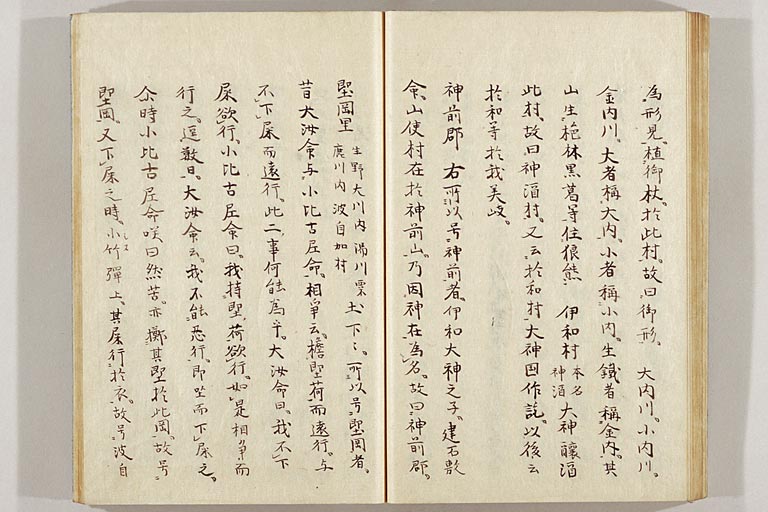 為形見。植御杖。於此村。故曰御形。 大内川。小内川。
金内川。大者稱大内。小者稱小内。生鐵者稱金内。其
山生桧林黒葛等住狼熊 伊和村 本名神酒 大神釀酒
此村。故曰神酒村。又云於和村大神国作訖。以後云
於和等於我美岐。
神前郡 右所以号神前者。伊和大神之子。建石敷
命。山使村在於神前山。乃因神在為名。故曰神前郡。
堲岡里 生野大川内湯川粟鹿川内波自加村 土下々。所以号堲岡者。
昔大汝命与。小比古尼命。相爭云。擔堲荷而遠行。与
不下屎而遠行。此二事何能為乎。大汝命曰。我不下
屎欲行。小比古尼命曰。我持堲荷欲行。如是相争而
行之。逕数日。大汝命云。我不能忍行。即坐而下屎之。
尒時小比古尼命咲曰然苦。亦擲其堲於此岡。故号
堲岡。又下屎之時。小竹彈上。其屎行於衣。故号波自